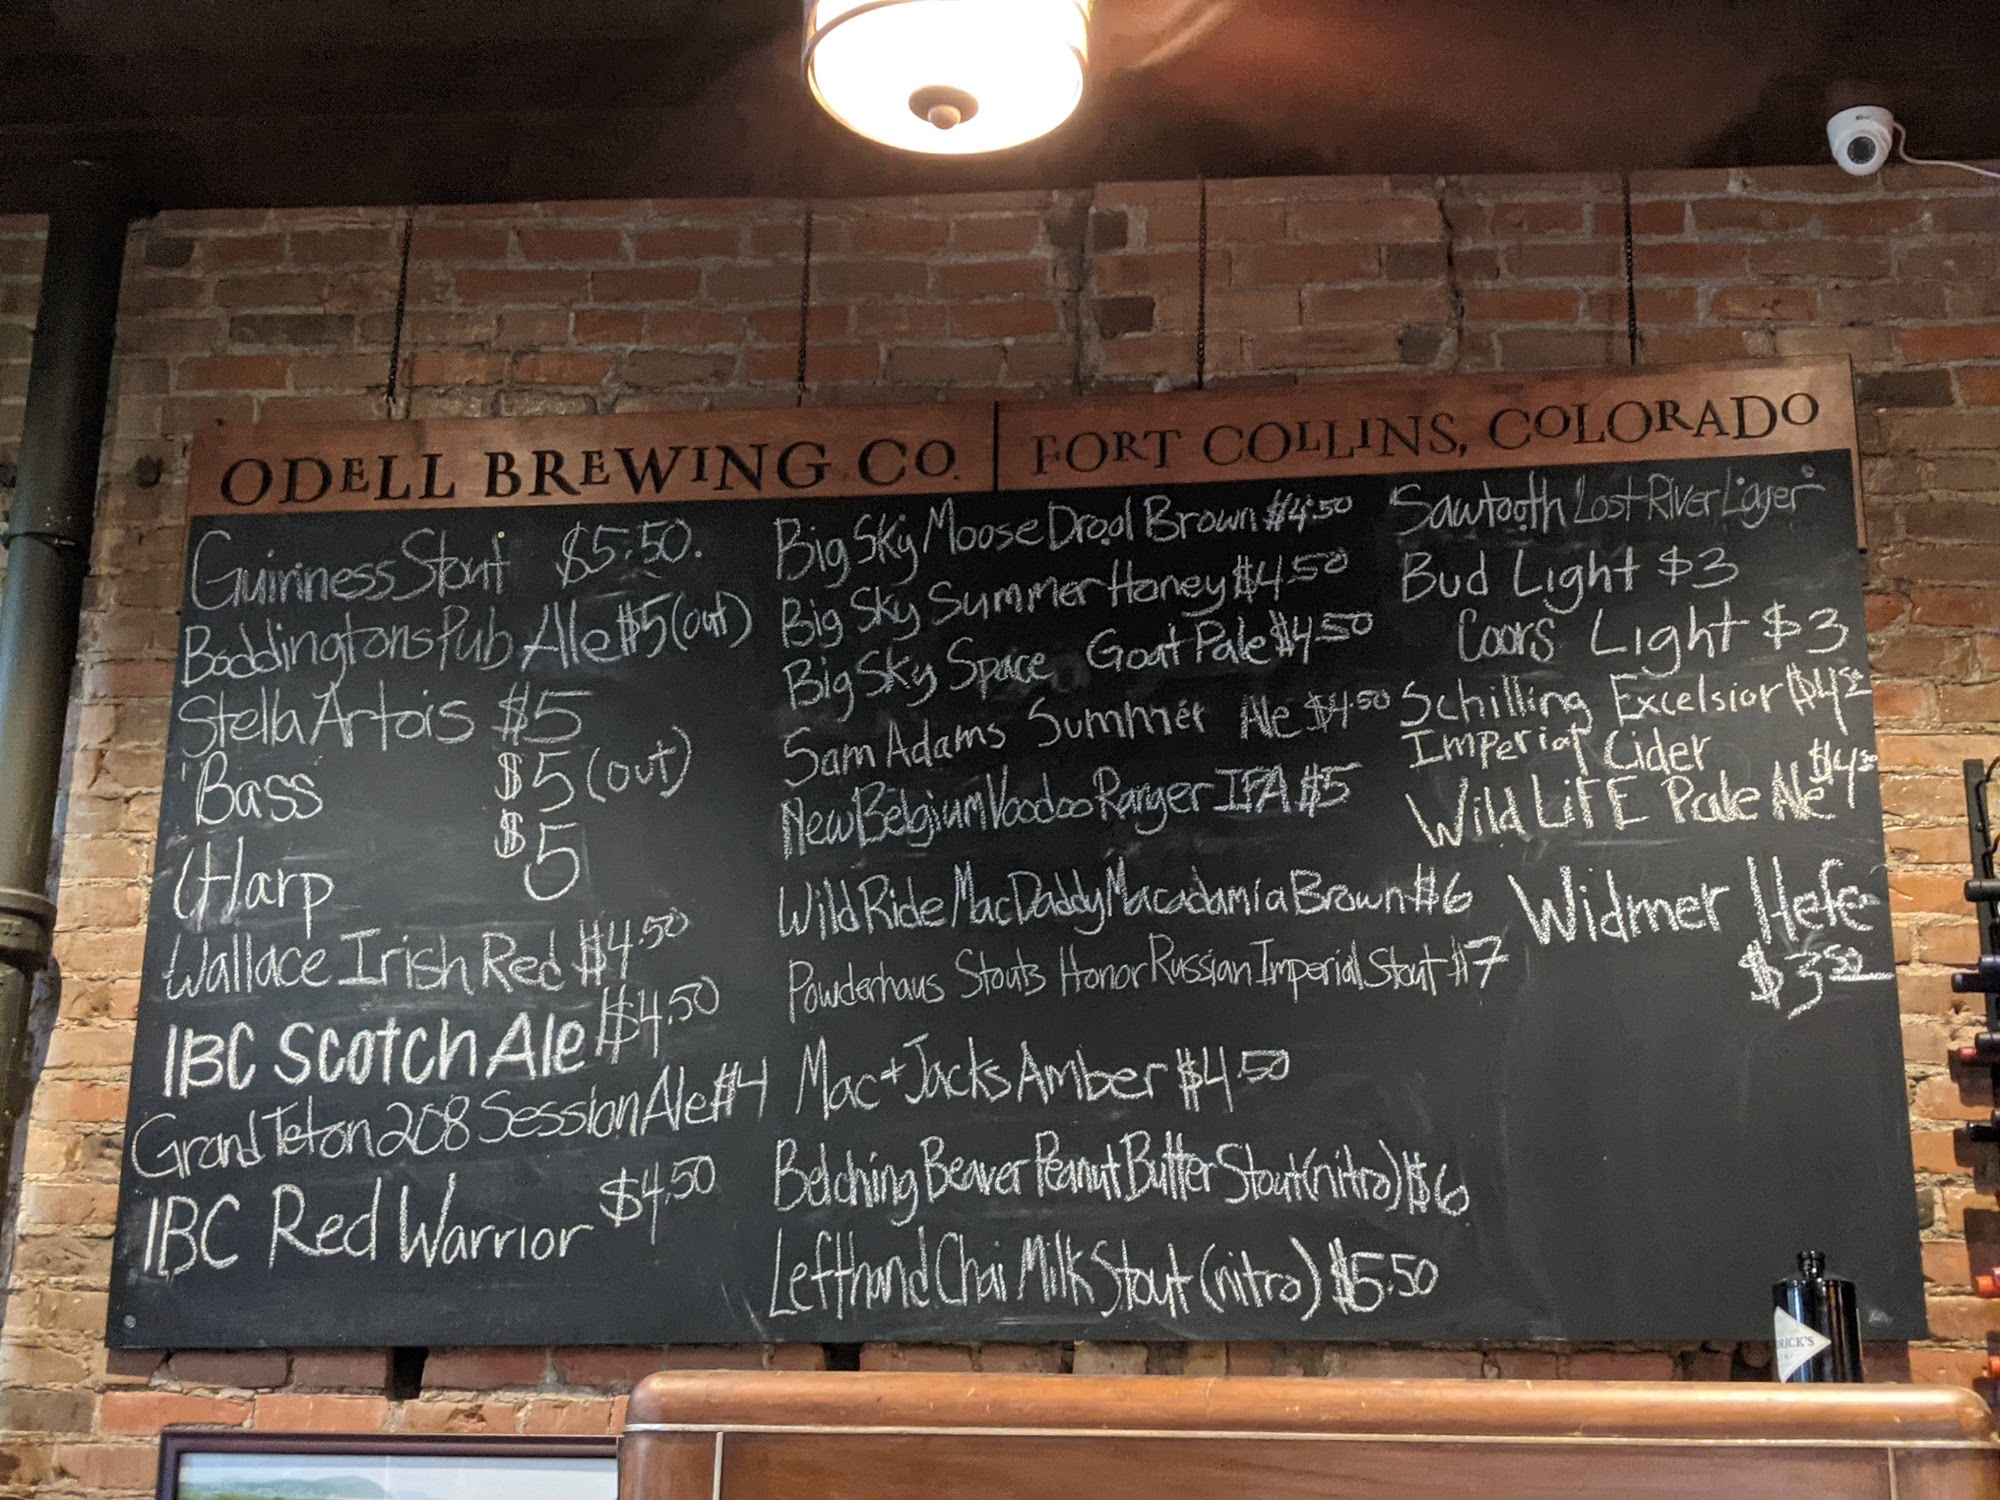 ODELL BREWING CO. FORT COLLINS, COLORADO
Guinness Stout $5.50.
Boddingtons Pub Ale $5 (out)
Stella Artois $5
Bass $5 (out)
Harp $5
Wallace Irish Red $4.50
IBC Scotch Ale $4.50
Grand Teton 208 Session Ale $4
IBC Red Warrior $4.50
Big Sky Moose Drool Brown $4.50
Big Sky Summer Honey $4.50
Big Sky Space Goat Pale $4.50
Sam Adams Summer Ale $4.50
New Belgium Voodoo Ranger IPA $5
Wild Ride Mac Daddy Macadamia Brown $6
Powderhaus Stouts Honor Russian Imperial Stout $7
Mac + Jacks Amber $4.50
Belching Beaver Peanut Butter Stout (nitro) $6
Lefthand Chai Milk Stout (nitro) $5.50
Sawtooth Lost River Lager
Bud Light $3
Coors Light $3
Schilling Excelsior
Imperial Cider
Wild LiFE Pale Ale $4.50
Widmer Hefe
$3.50
RICK'S